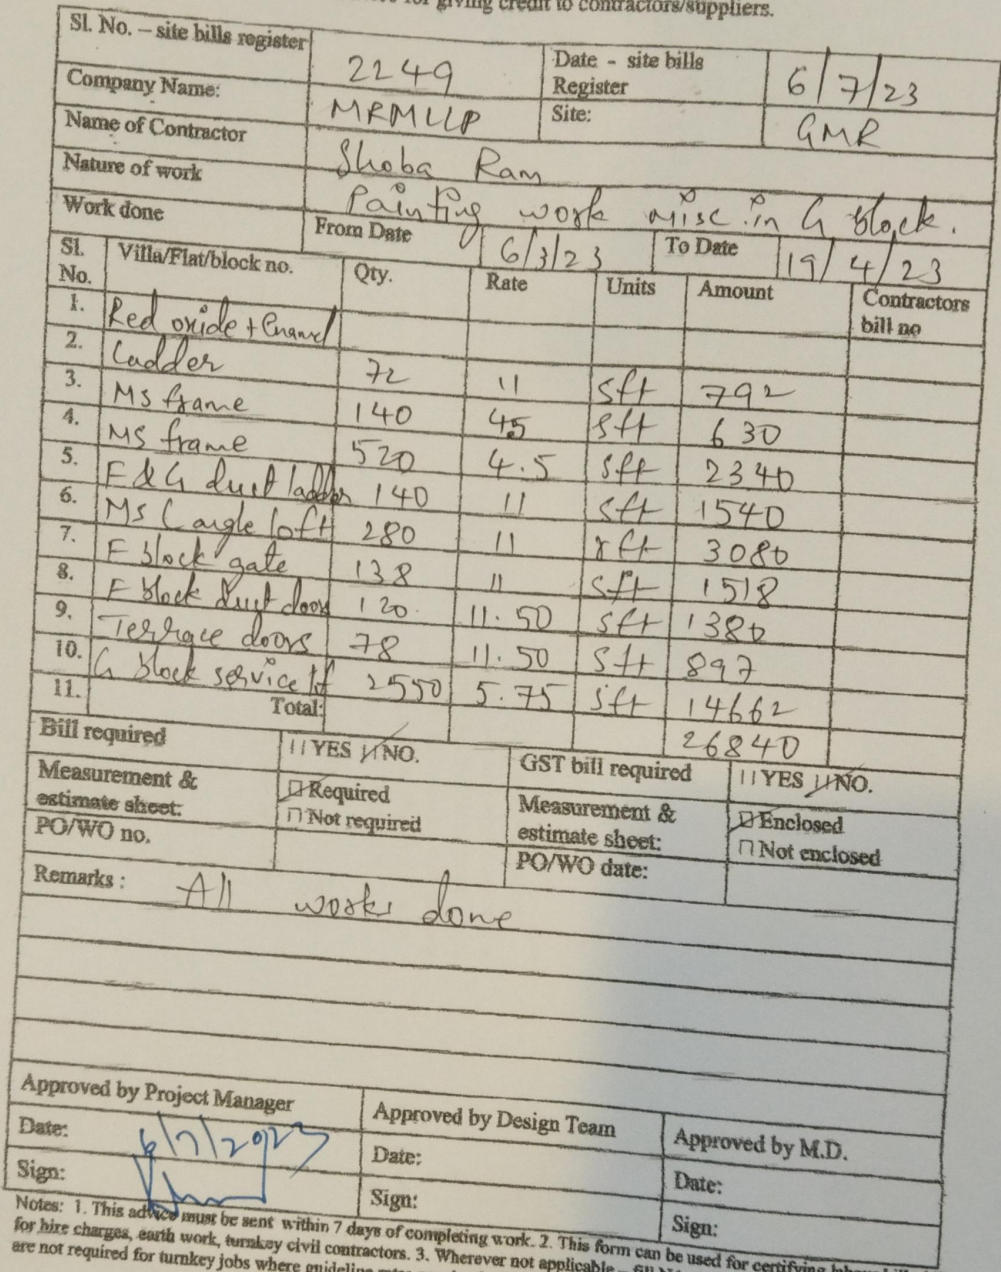 for giving credit to contractors/suppliers.
Sl. No. – site bills register 2249 Date - site bills Register 6/7/23
Company Name: MRMLLP Site: GMR
Name of Contractor Shoba Ram
Nature of work Painting work misc. in G block.
Work done From Date 6/3/23 To Date 19/4/23
Sl. No. Villa/Flat/block no. Qty. Rate Units Amount Contractors bill no
1. Red oxide + Enamel
2. Ladder 72 11 sft 792
3. Ms frame 140 45 sft 630
4. Ms frame 520 4.5 sft 2340
5. F & G duct ladder 140 11 sft 1540
6. Ms C angle loft 280 11 rft 3080
7. F block gate 138 11 sft 1518
8. F block duct doors 120. 11.50 sft 1380
9. Terrace doors 78 11.50 sft 897
10. G block service lf 2550 5.75 sft 14662
11. Total: 26840
Bill required YES NO. GST bill required YES NO.
Measurement & estimate sheet: Required Not required Measurement & estimate sheet: Enclosed Not enclosed
PO/WO no. PO/WO date:
Remarks : All works done
Approved by Project Manager Approved by Design Team Approved by M.D.
Date: 6/7/2023 Date: Date:
Sign: Sign: Sign:
Notes: 1. This advice must be sent within 7 days of completing work. 2. This form can be used for certifying
for hire charges, earth work, turnkey civil contractors. 3. Wherever not applicable –
are not required for turnkey jobs where guideline